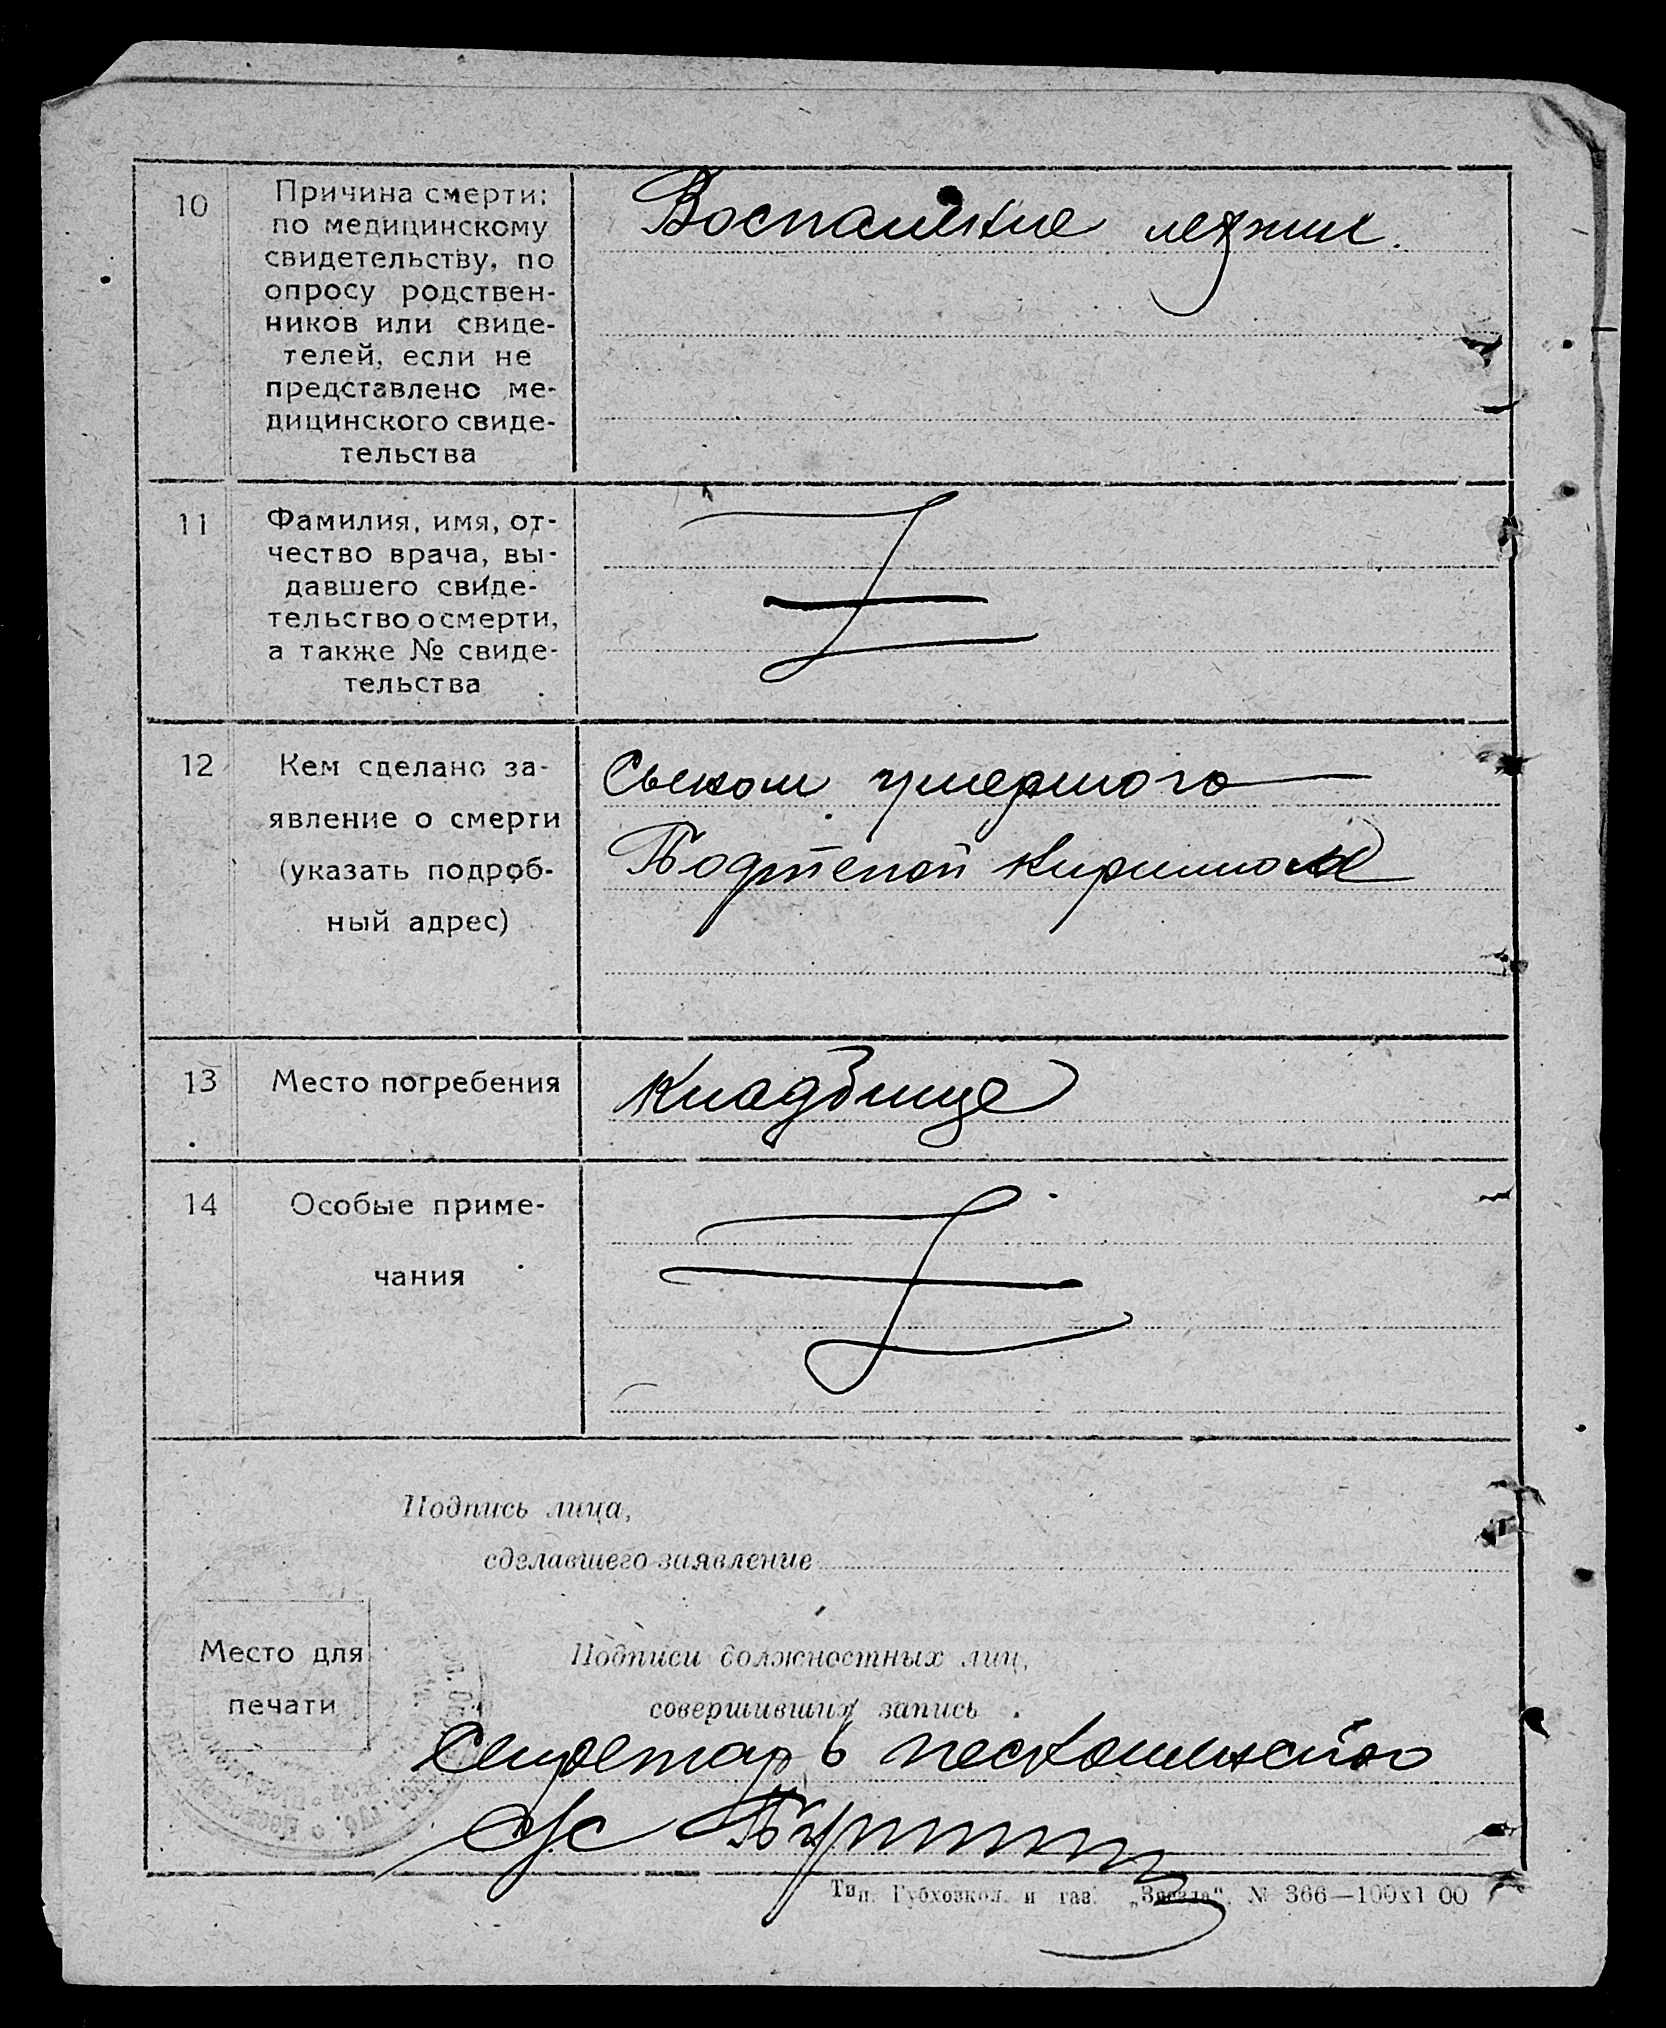 10 Причина смерти:
по медицинскому
свидетельству, по
опросу родствен-
ников или свиде-
телей, если не
представлено ме-
дицинского свиде-
тельства
Воспаление легких.
11 Фамилия, имя, от-
чество врача, вы-
давшего свиде-
тельство о смерти,
а также № свиде-
тельства
12 Кем сделано за-
явление о смерти
(указать подроб-
ный адрес)
умершого
13 Место погребения
Кладбище
14 Особые приме-
чания
Подпись лица,
сделавшего заявление
Место для
печати
Подписи должностных лиц,
совершивших запись
Секретарь
с/с
Тип. Губхозкол. и газ. „Звезда“. № 366—100х1 00